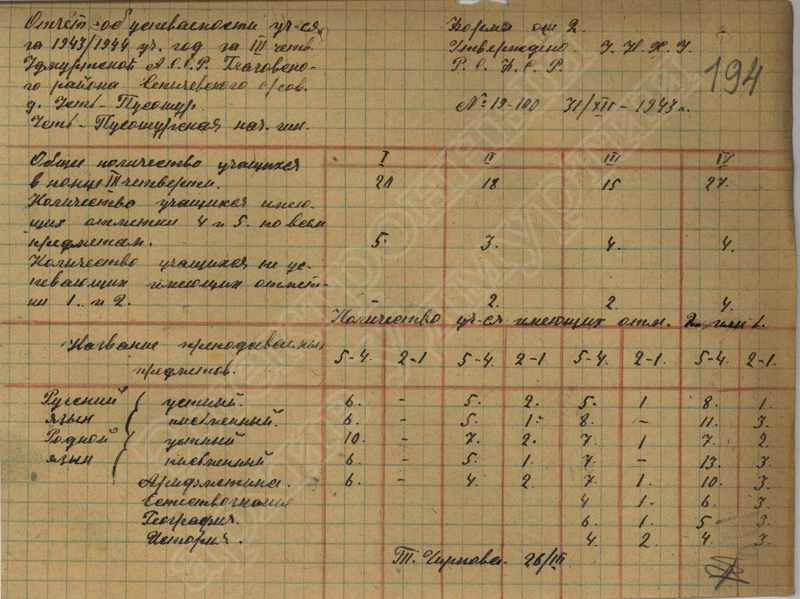 Отчёт об успеваемости уч-ся
за 1943/1944 уч. год за III четв.
Удмуртской А.С.С.Р.
го района сов.
д. Усть-Пусошур
Усть-Пусошурская нач.
Форма № 2.
Утверждено У. Н. Х. У.
Р. С. Ф. С. Р.
№ 19-100 XII - 1943 г.
194
Общее количество учащихся
в конце III четверти.
I II III IV
20 18 15 27.
Количество учащихся имею-
щих отметки 4 и 5. по всем
предметам.
5. 3. 4. 4.
Количество учащихся не ус-
певающих имеющих отмет-
ки 1. и 2.
- 2. 2 4.
Количество уч-ся имеющих отм. 2 или 1.
Название преподаваемых
предметов.
5-4. 2-1 5-4. 2-1 5-4. 2-1. 5-4 2-1.
Русский устный. 6. - 5. 2. 5. 1 8. 1.
язык письменный. 6. - 5. 1. 8. - 11. 3.
Родной устный 10. - 7. 2. 7. 1 7. 2.
язык письменный 6. - 5. 1. 7. - 13. 3.
Арифметика. 6. - 4. 2 7. 1 10. 3.
Естествознание 4 1. 6. 3.
География. 6. 1. 5 3.
История. 4. 2 4. 3.
Т. Чиркова. 26/III